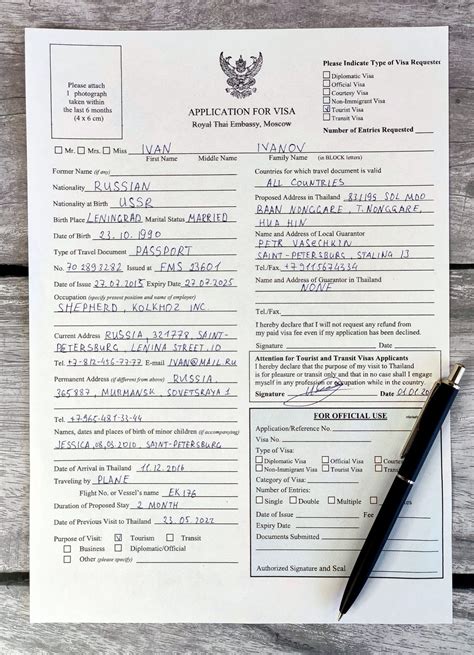 Please attach
1 photograph
taken within
the last 6 months
(4 x 6 cm)
APPLICATION FOR VISA
Royal Thai Embassy, Moscow
Please Indicate Type of Visa Requested
Diplomatic Visa
Official Visa
Courtesy Visa
Non-Immigrant Visa
V Tourist Visa
Transit Visa
Number of Entries Requested
Mr. Mrs. Miss IVAN IVANOV
First Name Middle Name Family Name (in BLOCK letters)
Former Name (if any)
Nationality RUSSIAN
Nationality at Birth USSR
Birth Place LENINGRAD Marital Status MARRIED
Date of Birth 23.10.1990
Type of Travel Document PASSPORT
No. 70 2893282 Issued at FMS 13601
Date of Issue 27.07.2015 Expiry Date 27.07.2025
Occupation (specify present position and name of employer)
SHEPHERD, KOLKHOZ INC.
Current Address RUSSIA, 321778, SAINT-
PETERSBURG, LENINA STREET, 10
Tel. +7-812-456-77-77 E-mail IVAN@MAIL.RU
Permanent Address (if different from above) RUSSIA,
365887, MURMANSK, SOVETSRAYA 1
Tel. +7-965-481-33-44
Names, dates and places of birth of minor children (if accompanying)
JESSICA, 08.03.2010, SAINT-PETERSBURG
Date of Arrival in Thailand 11.12.2016
Traveling by PLANE
Flight No. or Vessel's name EK 176
Duration of Proposed Stay 2 MONTH
Date of Previous Visit to Thailand 23.05.2022
Purpose of Visit: V Tourism Transit
Business Diplomatic/Official
Other (please specify)
Countries for which travel document is valid
ALL COUNTRIES
Proposed Address in Thailand 83/195 SOL MOO
BAAN NONGGARE, T.NONGGARE,
HUA HIN
Name and Address of Local Guarantor
PETR VASECHKIN
SAINT-PETERSBURG, STALINA 13
Tel./Fax. +79115674334
Name and Address of Guarantor in Thailand
NONE
Tel./Fax.
I hereby declare that I will not request any refund from my
paid visa fee even if my application has been declined.
Signature Date
Attention for Tourist and Transit Visas Applicants
I hereby declare that the purpose of my visit to Thailand
is for pleasure or transit only and that in no case shall I engage
myself in any profession or occupation while in the country.
Signature Date 01.01.20
FOR OFFICIAL USE
Application/Reference No.
Visa No.
Type of Visa:
Diplomatic Visa Official Visa
Non-Immigrant Visa Tourist Visa
Category of Visa:
Number of Entries:
Single Double Multiple
Date of Issue
Expiry Date
Documents Submitted
Authorized Signature and Seal